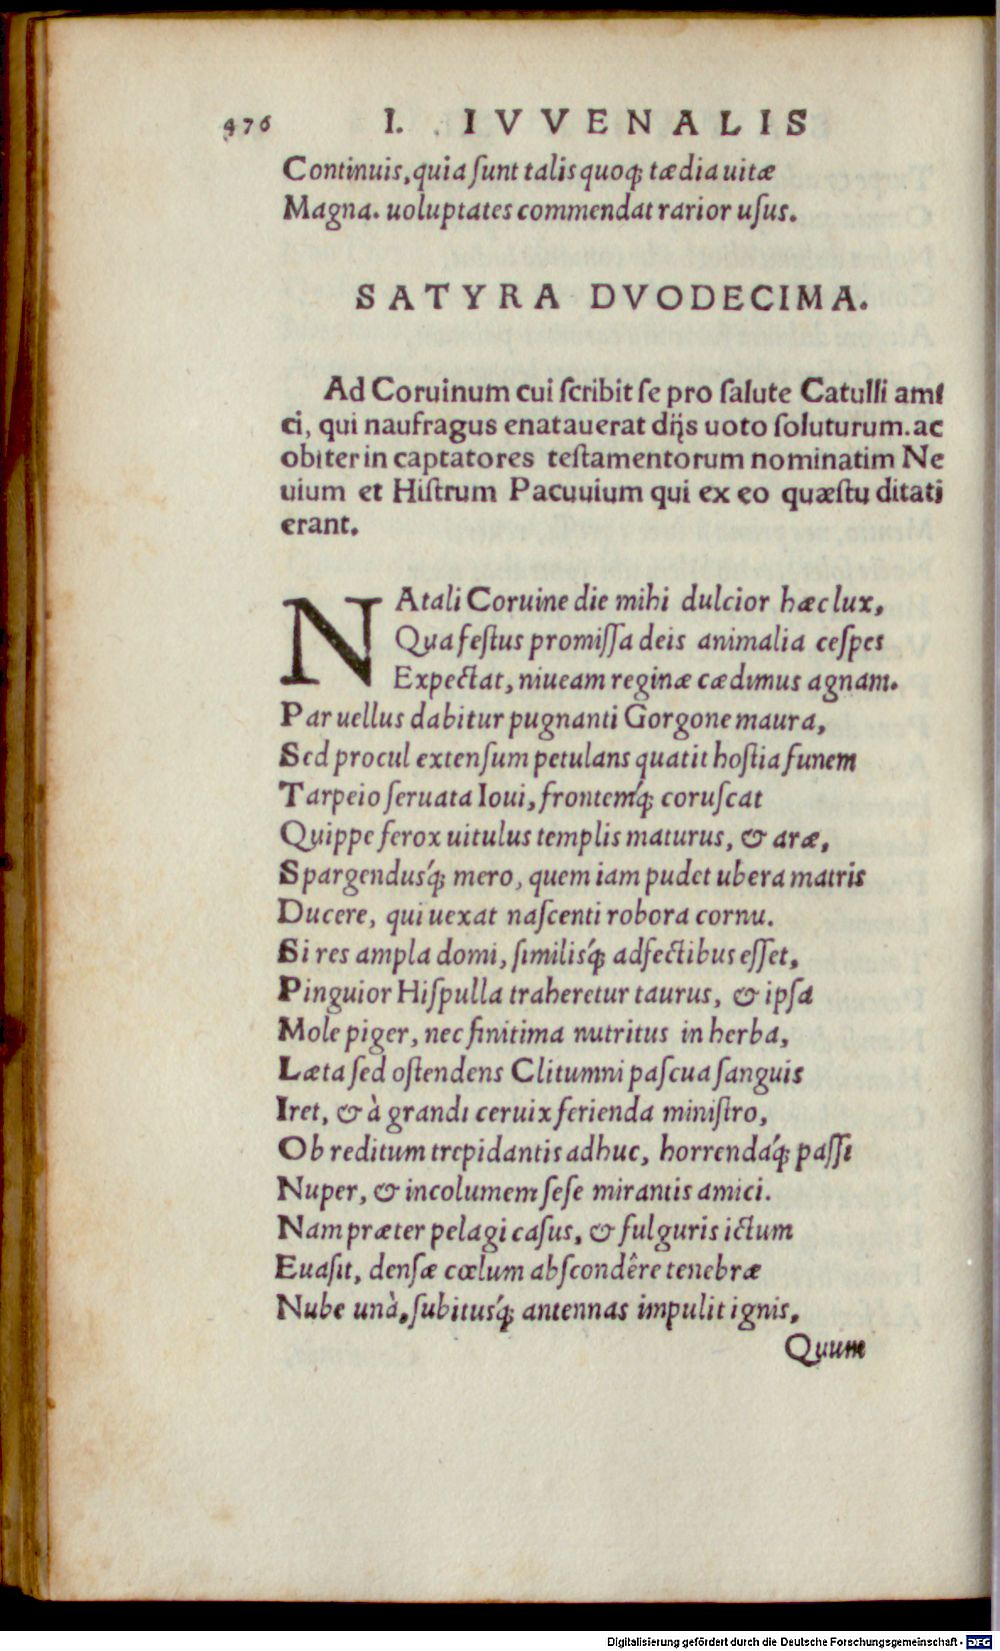 476 I. IVVENALIS
Continuis, quia ſunt talis quoq; tædia uitæ
Magna. uoluptates commendat rarior uſus.
SATYRA DVODECIMA.
Ad Coruinum cui ſcribit ſe pro ſalute Catulli ami
ci, qui naufragus enatauerat dijs uoto ſoluturum. ac
obiter in captatores teſtamentorum nominatim Ne
uium et Hiſtrum Pacuuium qui ex eo quæſtu ditati
erant.
NAtali Coruine die mihi dulcior hæc lux,
Qua feſtus promiſſa deis animalia ceſpes
Expectat, niueam reginæ cædimus agnam.
Par uellus dabitur pugnanti Gorgone maura,
Sed procul extenſum petulans quatit hoſtia funem
Tarpeio ſeruata Ioui, frontemq́; coruſcat
Quippe ferox uitulus templis maturus, & aræ,
Spargenduſq́; mero, quem iam pudet ubera matris
Ducere, qui uexat naſcenti robora cornu.
Si res ampla domi, ſimilisq́; adfectibus eſſet,
Pinguior Hiſpulla traheretur taurus, & ipſa
Mole piger, nec finitima nutritus in herba,
Læta ſed oſtendens Clitumni paſcua ſanguis
Iret, & à grandi ceruix ferienda miniſtro,
Ob reditum trepidantis adhuc, horrendaq́; paſſi
Nuper, & incolumem ſeſe mirantis amici.
Nam præter pelagi caſus, & fulguris ictum
Euaſit, denſæ cœlum abſcondêre tenebræ
Nube unà, ſubitusq́; antennas impulit ignis,
Quum
Digitalisierung gefördert durch die Deutsche Forschungsgemeinschaft - DFG